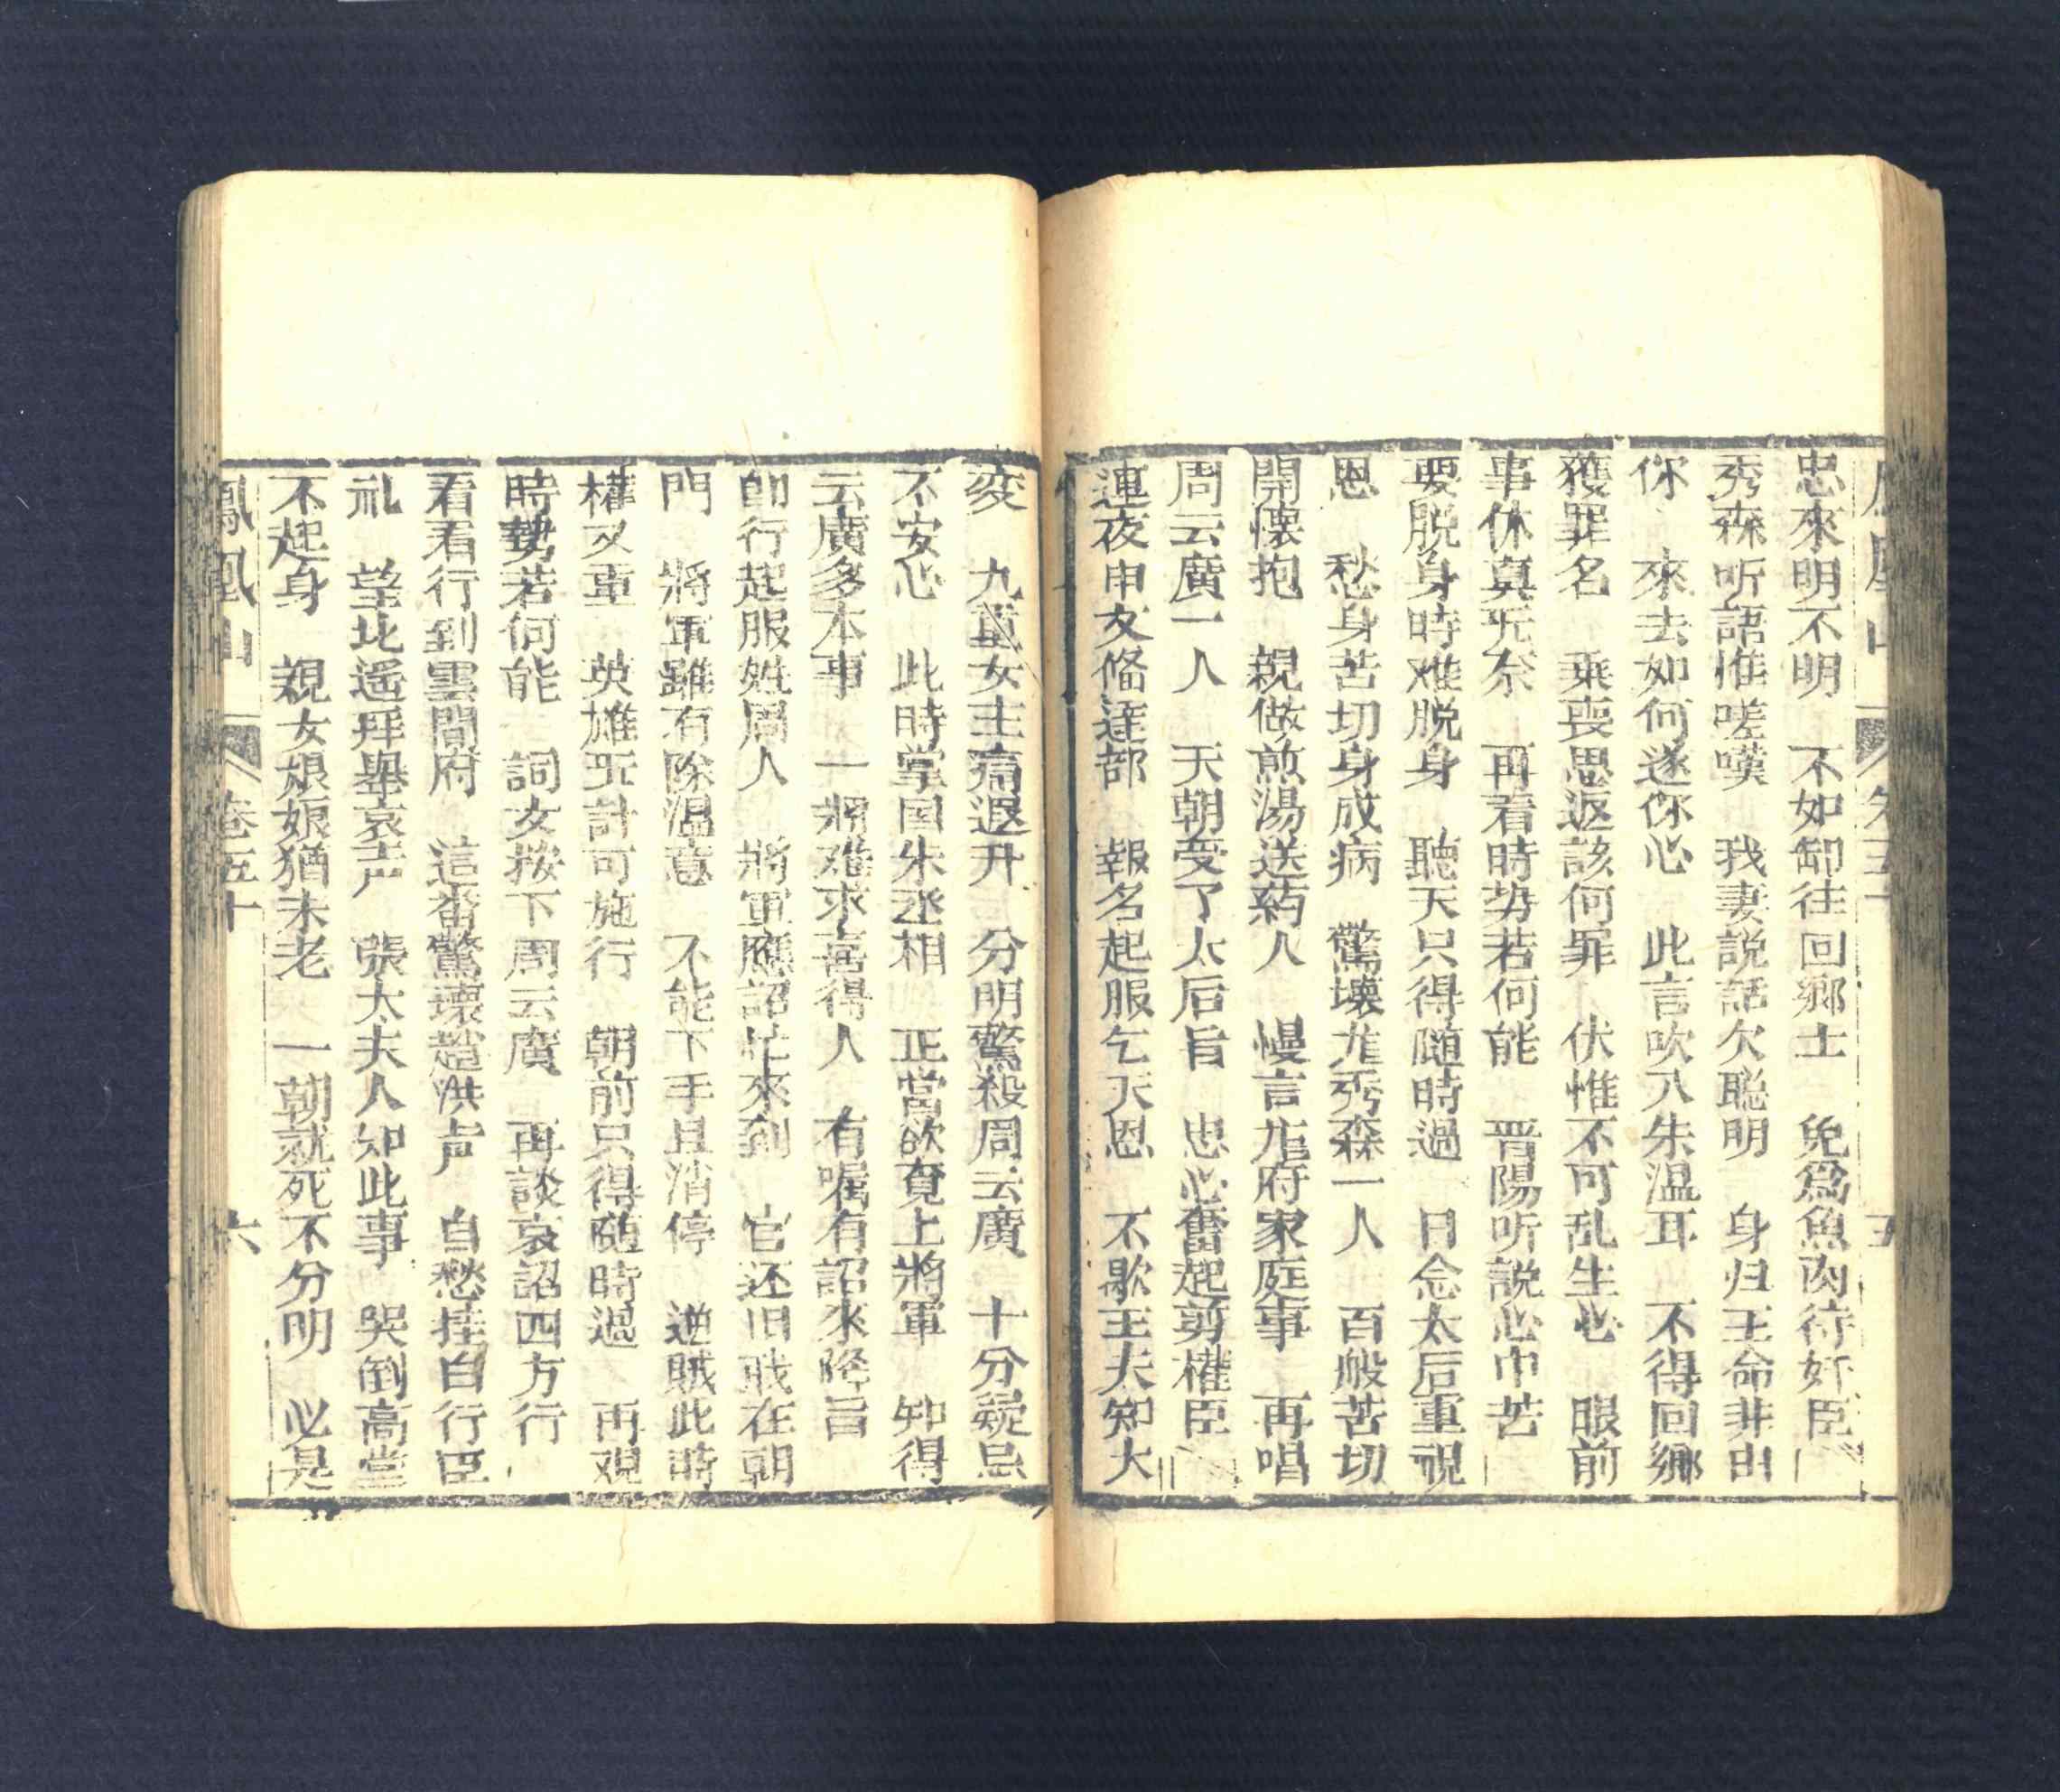 忠來明不明　不如卸往回鄉土　免爲魚肉待奸臣
秀森听語惟嗟嘆　我妻説話欠聡明　身归王命非由
你　來去如何遂你心　此言吹入朱溫耳　不得回鄉
獲罪名　乘喪思返該何罪　伏惟不可乱生心　眼前
事休真旡奈　再看時势若何能　晋陽听説心中苦
要脱身時难脱身　聽天只得随時過　日念太后重視
恩　愁身苦切身成病　驚壞尨秀森一人　百般苦切
開懷抱　親做煎湯送葯人　慢言尨府家庭事　再唱
周云廣一人　天朝受了太后旨　忠心奮起剪權臣
連夜申文俻達部　報名起服乞天恩　不歇王夫知大
変　九重女主痛遐升　分明驚殺周云廣　十分疑忌
不安心　此時掌国朱丞相　正當欲覓上將軍　知得
云廣多本事　一將难求喜得人　有嘱有詔來降旨
卽行起服姓周人　將軍應詔忙來到　官还旧戢在朝
門　將軍雖有除温意　不能下手且消停　逆賊此時
權又重　英雄旡計可施行　朝前只得随時過　再观
時勢若何能　詞女按下周云廣　再談哀詔四方行
看看行到雲間府　這畨驚壞趙洪声　自愁挂白行臣
礼　望北遥拜舉哀声　張太夫人知此事　哭倒高堂
不起身　親女娘娘猶未老　一朝就死不分明　必是
鳳凰山　卷五十　六